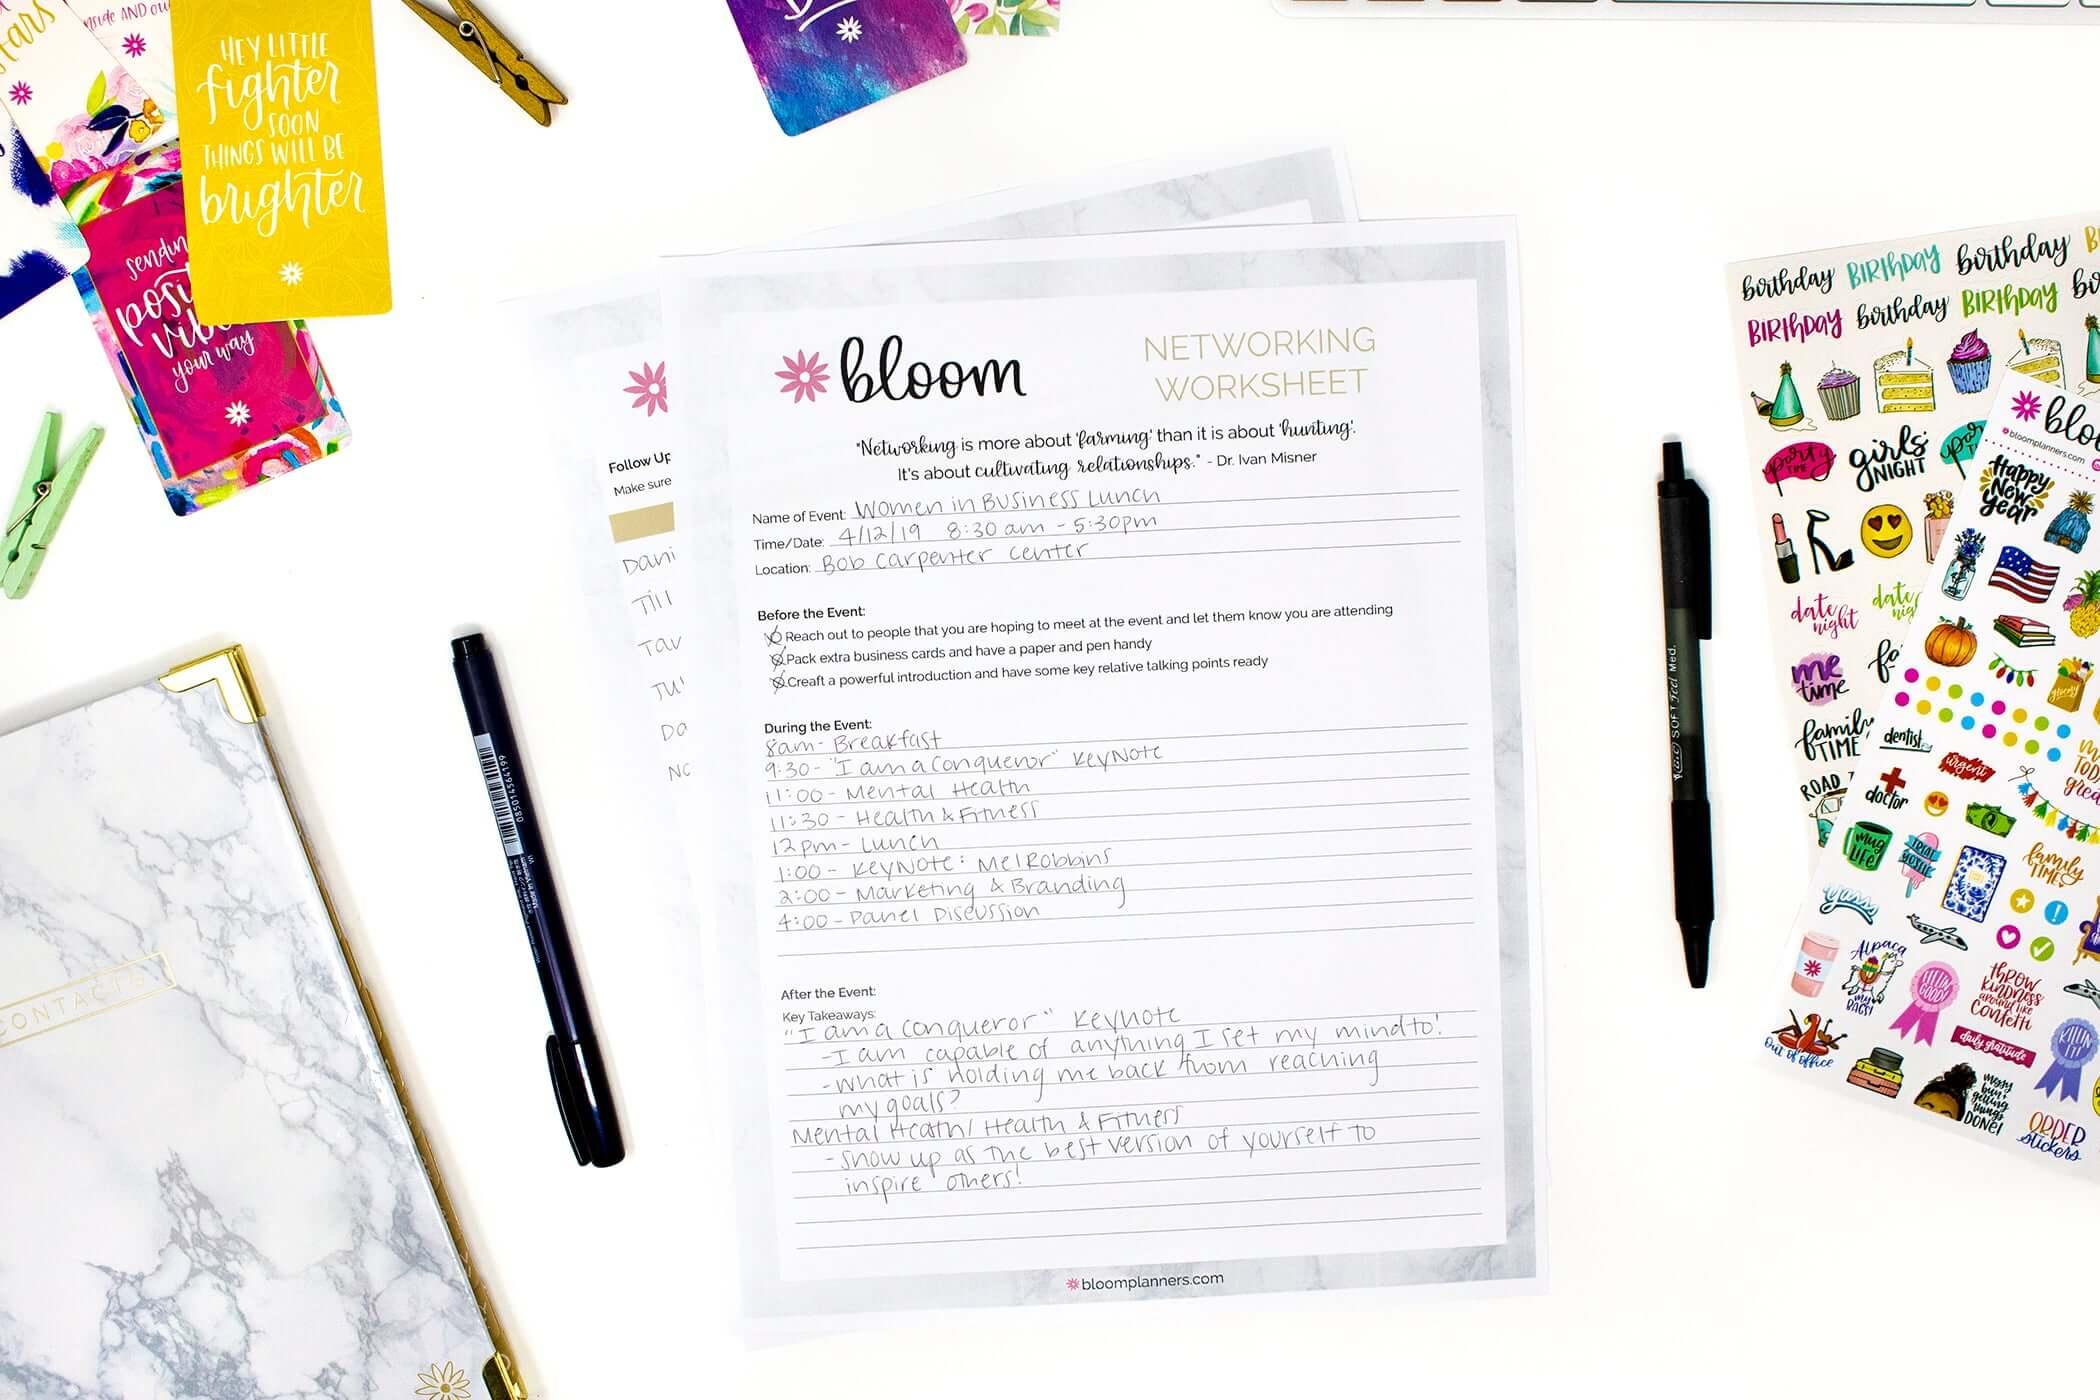 HEY LITTLE
fighter
SOON
THINGS WILL BE
brighter
your way
CONTACTS
085014564199
Made in Vietnam
Follow Up
Make sure
bloom
NETWORKING
WORKSHEET
"Networking is more about 'farming' than it is about 'hunting'.
It's about cultivating relationships." - Dr. Ivan Misner
Name of Event: Women in Business Lunch
Time/Date: 4/12/19 8:30 am - 5:30pm
Location: Bob Carpenter Center
Before the Event:
Reach out to people that you are hoping to meet at the event and let them know you are attending
Pack extra business cards and have a paper and pen handy
Creaft a powerful introduction and have some key relative talking points ready
During the Event:
8am - Breakfast
9:30 - "I am a conqueror" Keynote
11:00 - Mental Health
11:30 - Health & Fitness
12pm - Lunch
1:00 - Keynote: Mel Robbins
2:00 - Marketing & Branding
4:00 - Panel Discussion
After the Event:
Key Takeaways:
"I am a conqueror" Keynote
- I am capable of anything I set my mind to!
- What is holding me back from reaching
my goals?
Mental Heath/ Health & Fitness
- show up as the best version of yourself to
inspire others!
bloomplanners.com
SOFT Feel Med.
birthday BIRTHDAY birthday
BIRTHDAY birthday BIRTHDAY
party TIME
girls' NIGHT
bloomplanners.com
Happy New year
date night
me time
family TIME
dentist
urgent
doctor
mug LIFE
TREAT YOSELF
family TIME
yasss
Alpaca my BAGS!
HELLA GOOD!
THROW KINDNESS around like Confetti
daily gratitude
KILLIN IT!
out of office
messy bun & getting things DONE!
ORDER stickers